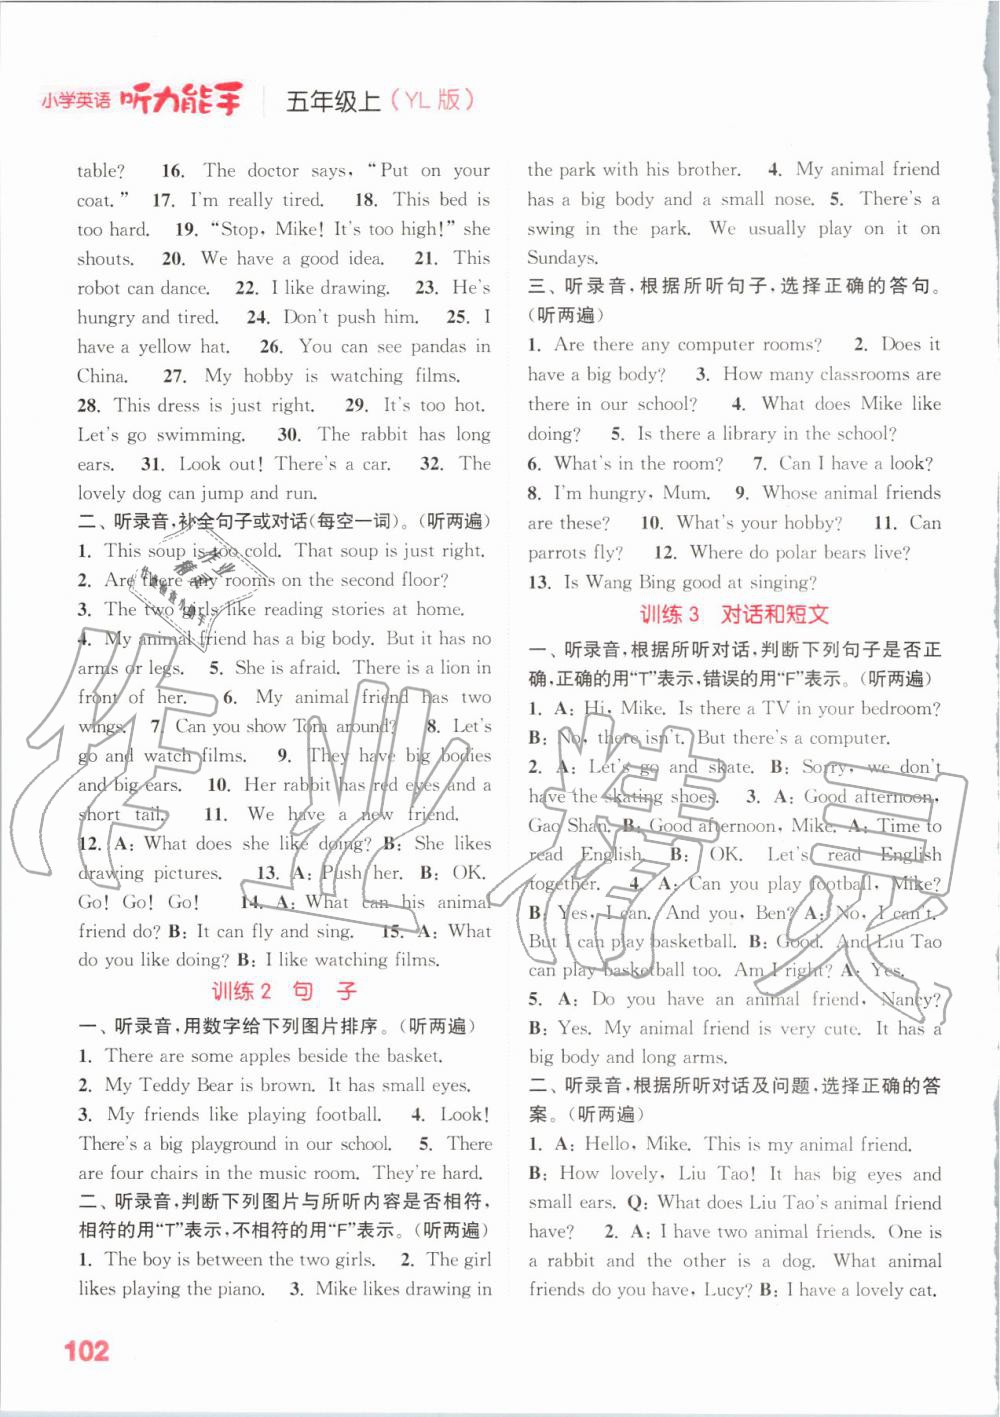 小学英语 听力能手 五年级上（YL 版）
table? 16. The doctor says, “Put on your
coat.” 17. I'm really tired. 18. This bed is
too hard. 19. “Stop, Mike! It's too high!” she
shouts. 20. We have a good idea. 21. This
robot can dance. 22. I like drawing. 23. He's
hungry and tired. 24. Don't push him. 25. I
have a yellow hat. 26. You can see pandas in
China. 27. My hobby is watching films.
28. This dress is just right. 29. It's too hot.
Let's go swimming. 30. The rabbit has long
ears. 31. Look out! There's a car. 32. The
lovely dog can jump and run.
二、听录音，补全句子或对话(每空一词)。（听两遍）
1. This soup is too cold. That soup is just right.
2. Are there any rooms on the second floor?
3. The two girls like reading stories at home.
4. My animal friend has a big body. But it has no
arms or legs. 5. She is afraid. There is a lion in
front of her. 6. My animal friend has two
wings. 7. Can you show Tom around? 8. Let's
go and watch films. 9. They have big bodies
and big ears. 10. Her rabbit has red eyes and a
short tail. 11. We have a new friend.
12. A: What does she like doing? B: She likes
drawing pictures. 13. A: Push her. B: OK.
Go! Go! Go! 14. A: What can his animal
friend do? B: It can fly and sing. 15. A: What
do you like doing? B: I like watching films.
训练 2 句 子
一、听录音，用数字给下列图片排序。（听两遍）
1. There are some apples beside the basket.
2. My Teddy Bear is brown. It has small eyes.
3. My friends like playing football. 4. Look!
There's a big playground in our school. 5. There
are four chairs in the music room. They're hard.
二、听录音，判断下列图片与所听内容是否相符，
相符的用“T”表示，不相符的用“F”表示。（听两遍）
1. The boy is between the two girls. 2. The girl
likes playing the piano. 3. Mike likes drawing in
the park with his brother. 4. My animal friend
has a big body and a small nose. 5. There's a
swing in the park. We usually play on it on
Sundays.
三、听录音，根据所听句子，选择正确的答句。
（听两遍）
1. Are there any computer rooms? 2. Does it
have a big body? 3. How many classrooms are
there in our school? 4. What does Mike like
doing? 5. Is there a library in the school?
6. What's in the room? 7. Can I have a look?
8. I'm hungry, Mum. 9. Whose animal friends
are these? 10. What's your hobby? 11. Can
parrots fly? 12. Where do polar bears live?
13. Is Wang Bing good at singing?
训练 3 对话和短文
一、听录音，根据所听对话，判断下列句子是否正
确，正确的用“T”表示，错误的用“F”表示。（听两遍）
1. A: Hi, Mike. Is there a TV in your bedroom?
B: No, there isn't. But there's a computer.
2. A: Let's go and skate. B: Sorry, we don't
have the skating shoes. 3. A: Good afternoon,
Gao Shan. B: Good afternoon, Mike. A: Time to
read English. B: OK. Let's read English
together. 4. A: Can you play football, Mike?
B: Yes, I can. And you, Ben? A: No, I can't.
But I can play basketball. B: Good. And Liu Tao
can play basketball too. Am I right? A: Yes.
5. A: Do you have an animal friend, Nancy?
B: Yes. My animal friend is very cute. It has a
big body and long arms.
二、听录音，根据所听对话及问题，选择正确的答
案。（听两遍）
1. A: Hello, Mike. This is my animal friend.
B: How lovely, Liu Tao! It has big eyes and
small ears. Q: What does Liu Tao's animal friend
have? 2. A: I have two animal friends. One is
a rabbit and the other is a dog. What animal
friends do you have, Lucy? B: I have a lovely cat.
102
作业精灵